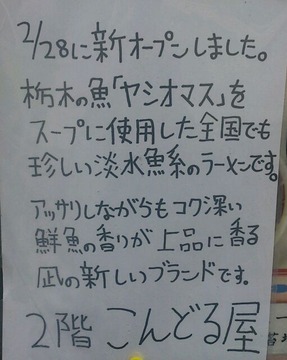 2/28に新オープンしました。
栃木の魚「ヤシオマス」を
スープに使用した全国でも
珍しい淡水魚系のラーメンです。
アッサリしながらもコク深い
鮮魚の香りが上品に香る
凪の新しいブランドです。
2階 こんどる屋